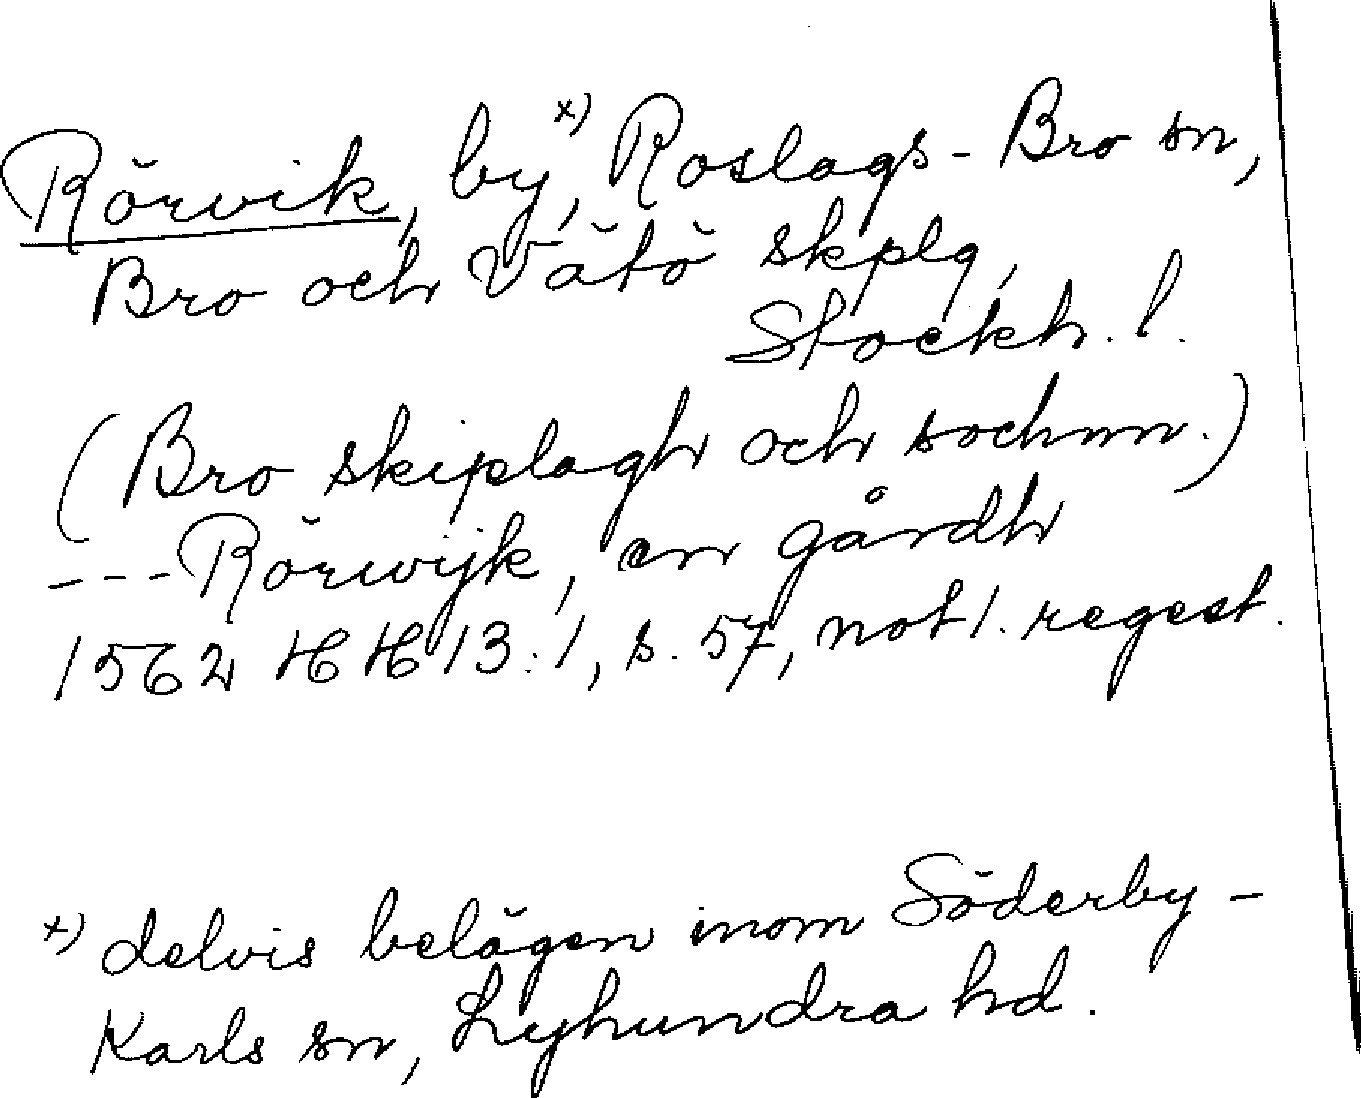 Rörvik, by,x) Roslags-Bro sn,
Bro och Vätö skplg,
Stockh. l.
(Bro skiplagh och sochnn.)
---Rörwijk, en gårdh
1562 HH 13:1, s. 57, not 1. regest.
x) delvis belägen inom Söderby-
Karls sn, Lyhundra hd.